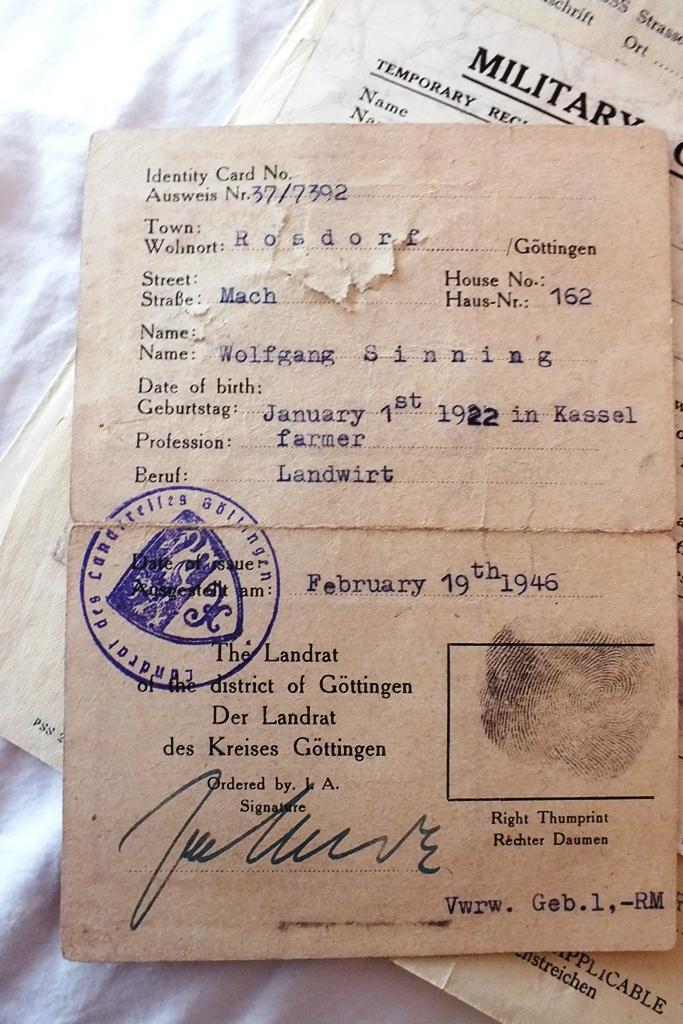 SS Strasse
schrift Ort
MILITARY
TEMPORARY
Name
Identity Card No.
Ausweis Nr. 37/7392
Town:
Wohnort: Rosdorf /Göttingen
Street: House No.:
Straße: Mach Haus-Nr.: 162
Name:
Name: Wolfgang Sinning
Date of birth:
Geburtstag: January 1st 1922 in Kassel
Profession: farmer
Beruf: Landwirt
Landrat des Landkreises Göttingen
Date of issue:
Ausgestellt am: February 19th 1946
The Landrat
of the district of Göttingen
Der Landrat
des Kreises Göttingen
Ordered by. I. A.
Signature
Right Thumprint
Rechter Daumen
Vwrw. Geb.1,-RM
PSS
APPLICABLE
nstreichen